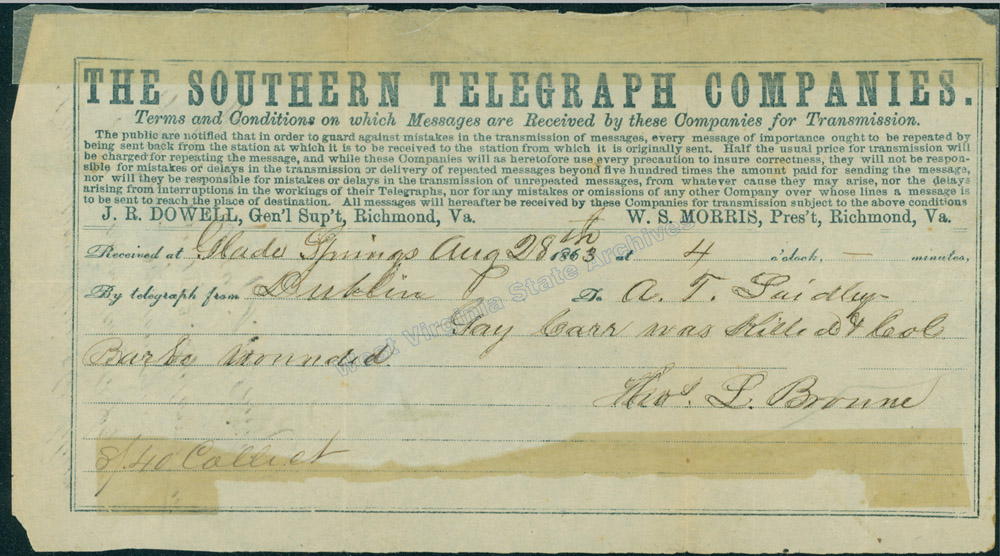 THE SOUTHERN TELEGRAPH COMPANIES.
Terms and Conditions on which Messages are Received by these Companies for Transmission.
The public are notified that in order to guard against mistakes in the transmission of messages, every message of importance ought to be repeated by
being sent back from the station at which it is to be received to the station from which it is originally sent. Half the usual price for transmission will
be charged for repeating the message, and while these Companies will as heretofore use every precaution to insure correctness, they will not be respon-
sible for mistakes or delays in the transmission or delivery of repeated messages beyond five hundred times the amount paid for sending the message,
nor will they be responsible for mistakes or delays in the transmission of unrepeated messages, from whatever cause they may arise, nor the delays
arising from interruptions in the workings of their Telegraphs, nor for any mistakes or omissions of any other Company over whose lines a message is
to be sent to reach the place of destination. All messages will hereafter be received by these Companies for transmission subject to the above conditions
J. R. DOWELL, Gen'l Sup't, Richmond, Va. W. S. MORRIS, Pres't, Richmond, Va.
Received at Glade Springs Aug 28th 1863 at 4 o'clock, — minutes,
By telegraph from Dublin To A. T. Laidley
Jay Carr was Killed & Col
Barbe Wounded
Thos. L. Broune
40 Collect
West Virginia State Archives